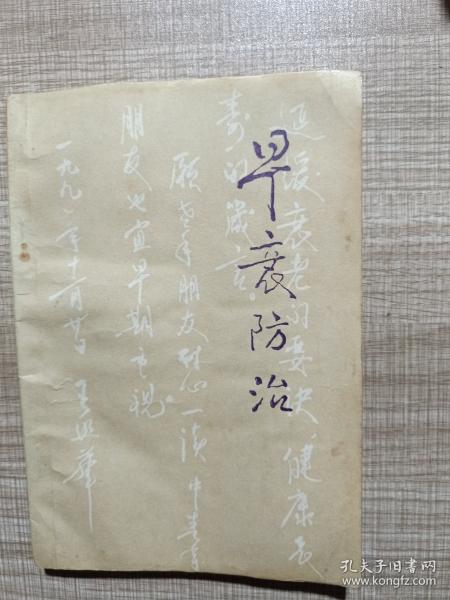 早衰防治
延缓衰老的要诀，健康长
寿的箴言。
愿老年朋友耐心一读中青年
朋友也宜早期重视
一九九一年十一月
孔夫子旧书网
www.kongfz.com